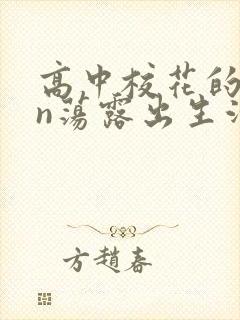 高中校花的
n蕩露出生
方趙春